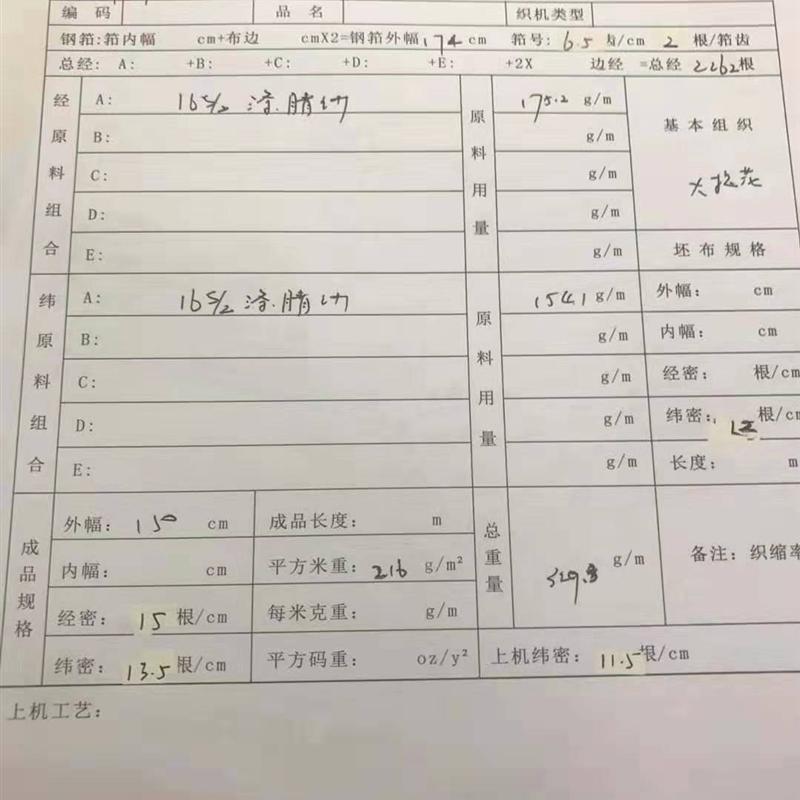 编码 品名 织机类型
钢筘:筘内幅 cm+布边 cmX2=钢筘外幅174cm 筘号:6.5齿/cm 2根/筘齿
总经: A: +B: +C: +D: +E: +2X 边经 =总经2262根
经原料组合
A: 16S/2 涤.腈
B:
C:
D:
E:
原料用量
175.2 g/m
g/m
g/m
g/m
g/m
基本组织
大提花
坯布规格
纬原料组合
A: 16S/2 涤.腈
B:
C:
D:
E:
原料用量
154.1 g/m
g/m
g/m
g/m
g/m
外幅: cm
内幅: cm
经密: 根/cm
纬密: 12 根/cm
长度: m
成品规格
外幅: 150 cm
内幅: cm
经密: 15 根/cm
纬密: 13.5根/cm
成品长度: m
平方米重: 216 g/m²
每米克重: g/m
平方码重: oz/y²
总重量
329.3 g/m
备注: 织缩率
上机纬密: 11.5根/cm
上机工艺: